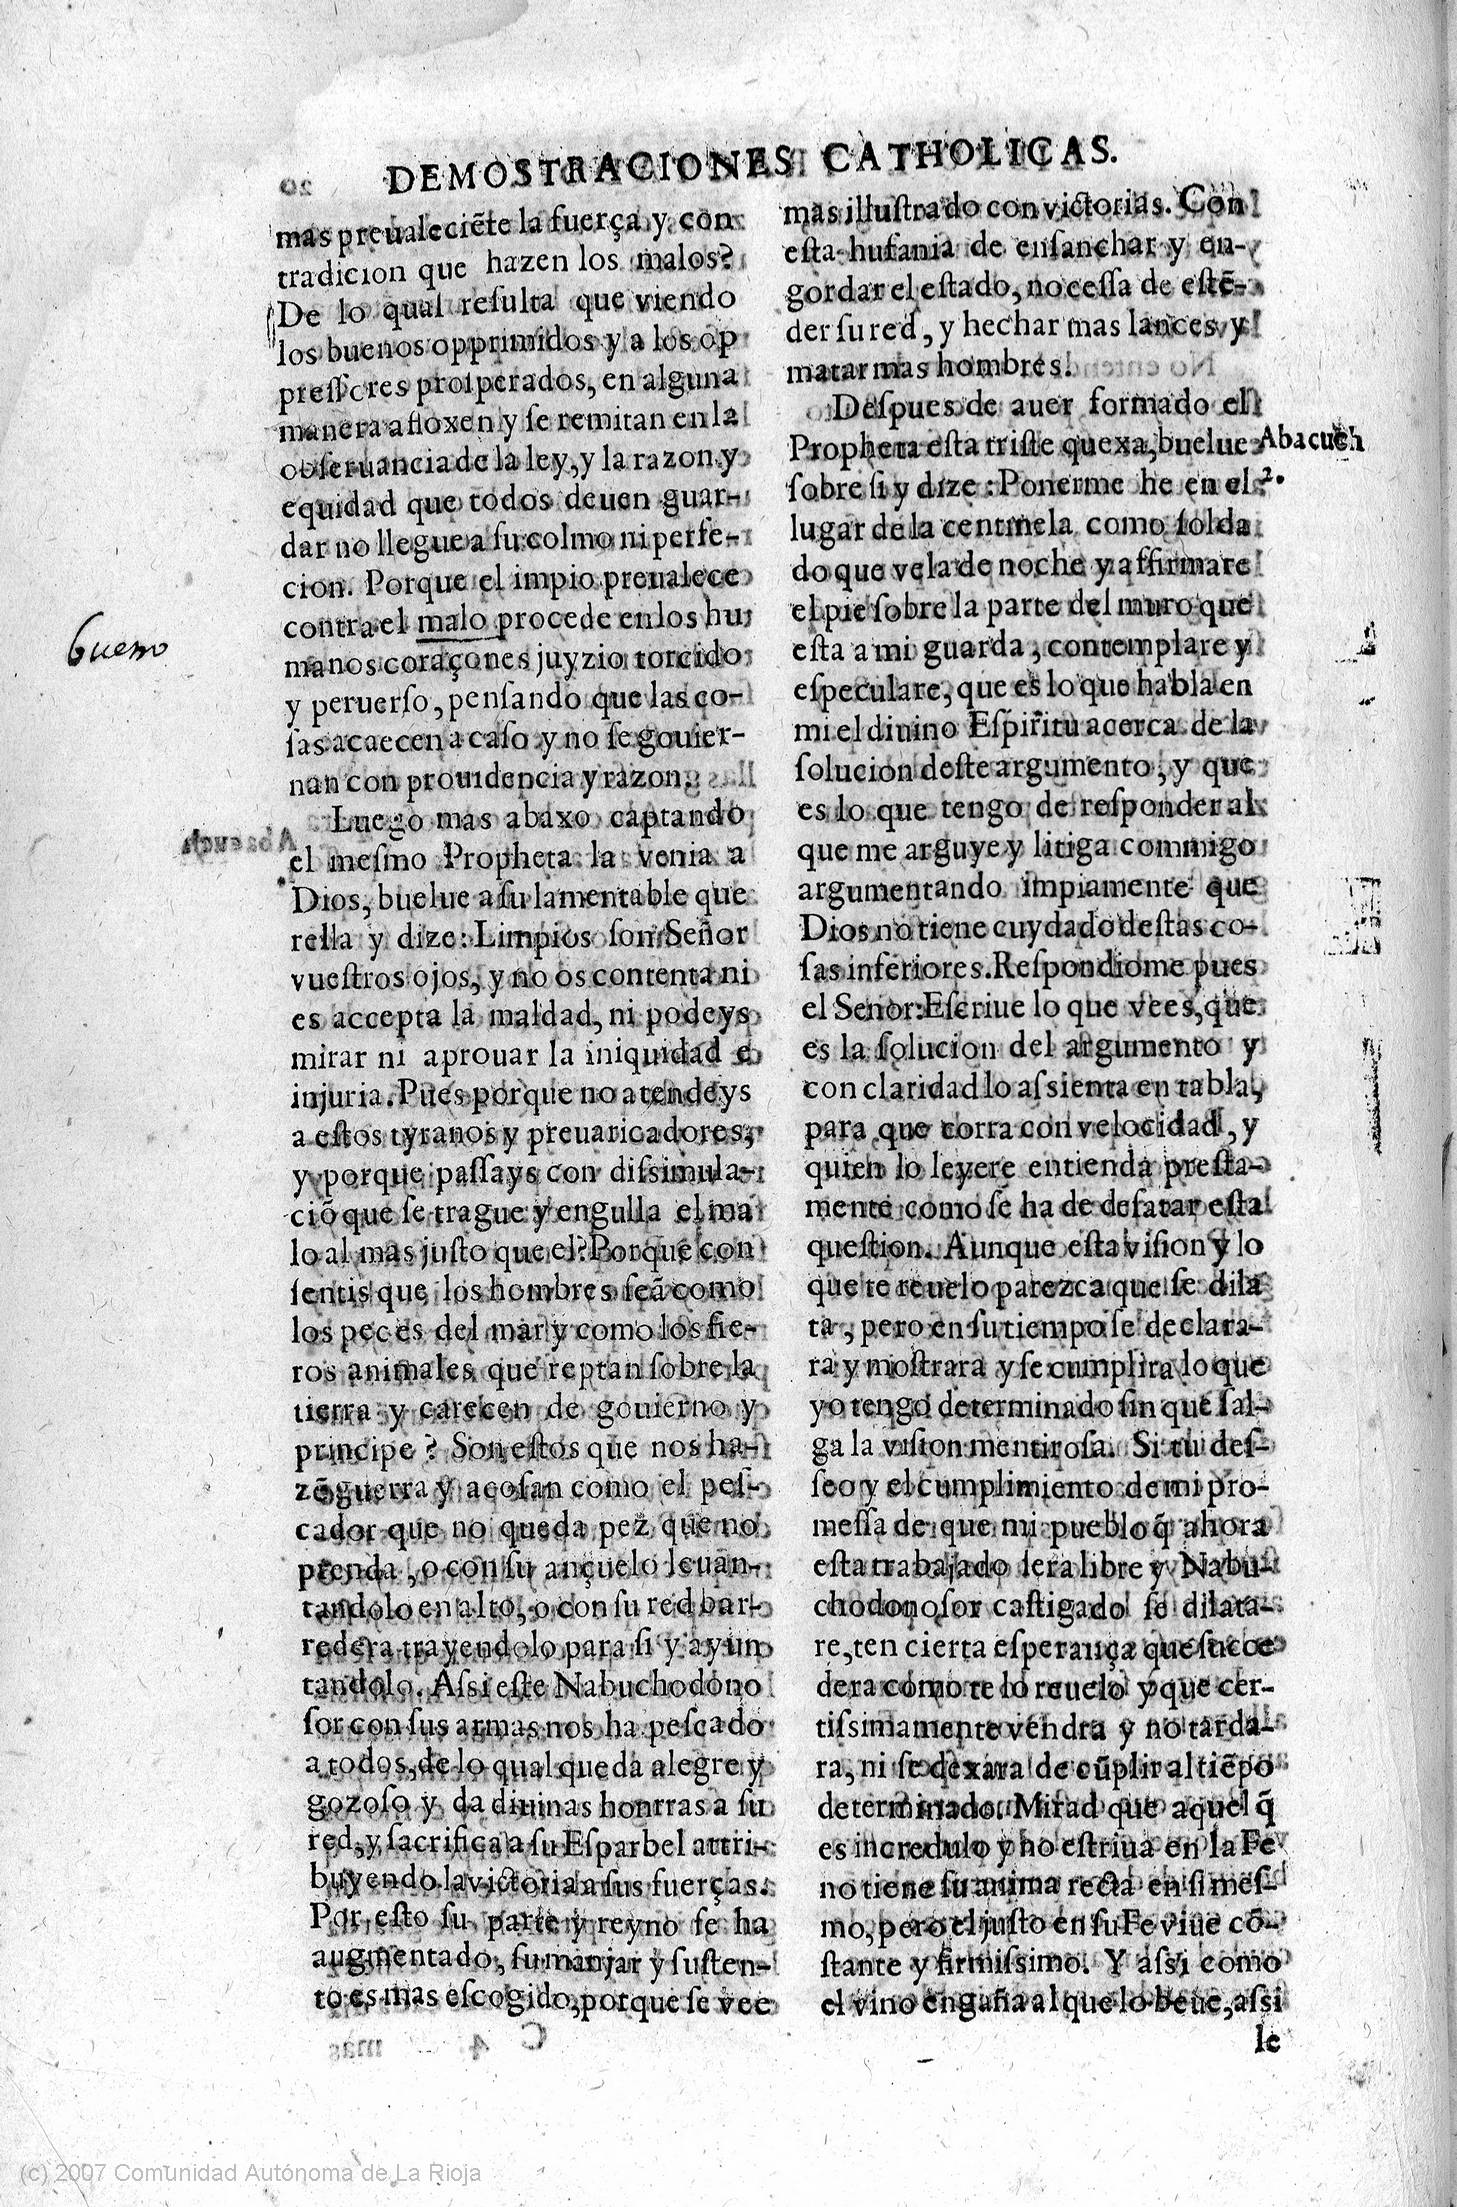 DEMOSTRACIONES CATHOLICAS.
mas preualeciẽte la fuerça y con
tradicion que hazen los malos?
De lo qual resulta que viendo
los buenos opprimidos y a los op
pressores prosperados, en alguna
manera afloxen y se remitan en la
obseruancia de la ley, y la razon y
equidad que todos deuen guar-
dar no llegue a su colmo ni perfe-
cion. Porque el impio preualece
contra el malo procede en los hu
manos coraçones juyzio torcido
y peruerso, pensando que las co-
sas acaecen a caso y no se gouier-
nan con prouidencia y razon.
bueno
Luego mas abaxo captando
el mesmo Propheta la venia a
Dios, buelue a su lamentable que
rella y dize: Limpios son Señor
vuestros ojos, y no os contenta ni
es accepta la maldad, ni podeys
mirar ni aprouar la iniquidad e
injuria. Pues porque no atendeys
a estos tyranos y preuaricadores,
y porque passays con dissimula-
ciõ que se trague y engulla el ma
lo al mas justo que el? Porque con
sentis que los hombres seã como
los peces del mar y como los fie-
ros animales que reptan sobre la
tierra y carecen de gouierno y
principe? Son estos que nos ha-
zẽ guerra y acosan como el pes-
cador que no queda pez que no
prenda, o con su ançuelo leuan-
tandolo en alto, o con su red bar-
redera trayendolo para si y ayun
tandolo. Assi este Nabuchodono
sor con sus armas nos ha pescado
a todos, de lo qual queda alegre y
gozoso y da diuinas honrras a su
red, y sacrifica a su Esparbel attri-
buyendo la victoria a sus fuerças.
Por esto su parte y reyno se ha
augmentado, su manjar y susten-
to es mas escogido, porque se vee
mas illustrado con victorias. Con
esta hufania de ensanchar y en-
gordar el estado, no cessa de estẽ-
der su red, y hechar mas lances y
matar mas hombres.
Despues de auer formado el
Propheta esta triste quexa, buelue
sobre si y dize: Ponerme he en el
lugar de la centinela como solda
do que vela de noche y affirmare
el pie sobre la parte del muro que
esta a mi guarda, contemplare y
especulare, que es lo que habla en
mi el diuino Espiritu acerca de la
solucion deste argumento, y que
es lo que tengo de responder al
que me arguye y litiga commigo
argumentando impiamente que
Dios no tiene cuydado destas co-
sas inferiores. Respondiome pues
el Señor: Escriue lo que vees, que
es la solucion del argumento y
con claridad lo assienta en tabla,
para que corra con velocidad, y
quien lo leyere entienda presta-
mente como se ha de desatar esta
question. Aunque esta vision y lo
que te reuelo parezca que se dila
ta, pero en su tiempo se declara-
ra y mostrara y se cumplira lo que
yo tengo determinado sin que sal-
ga la vision mentirosa. Si tu des-
seo y el cumplimiento de mi pro-
messa de que mi pueblo q̃ ahora
esta trabajado sera libre y Nabu-
chodonosor castigado se dilata-
re, ten cierta esperança que succe
dera como te lo reuelo y que cer-
tissimamente vendra y no tarda-
ra, ni se dexara de cũplir al tiẽpo
determinado. Mirad que aquel q̃
es incredulo y no estriua en la Fe
no tiene su anima recta en si mes-
mo, pero el justo en su Fe viue cõ-
stante y firmissimo. Y assi como
el vino engaña al que lo beue, assi
le
Abacuch
2.
(c) 2007 Comunidad Autónoma de La Rioja